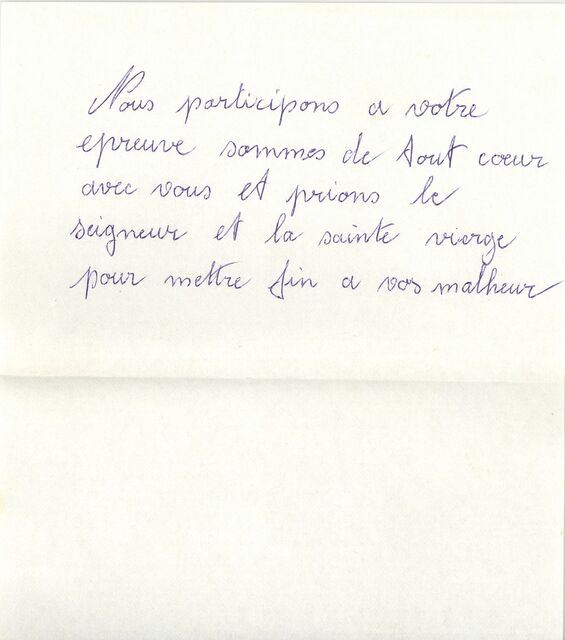 Nous participons a votre
epreuve sommes de tout cœur
avec vous et prions le
seigneur et la sainte vierge
pour mettre fin a vos malheur